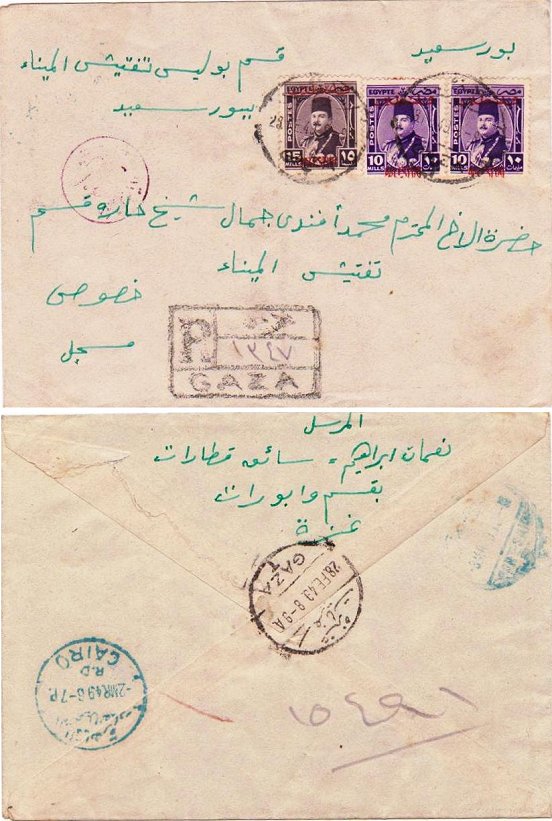 بورسعيد
قسم بوليس تفتيش الميناء
ببورسعيد
EGYPTE
POSTES
15 MILLS ١٥
EGYPTE
POSTES
10 MILLS ١٠
EGYPTE
POSTES
10 MILLS ١٠
حضرة الاخ المحترم محمد أفندى جمال شيخ حارة قسم
تفتيش الميناء
خصوصى
مسجل
R
غزة
١٢٤٧
GAZA
المرسل
نعمان ابراهيم - سائق قطارات
بقسم وابورات
غزة
GAZA
28 FE 49 8-9 A
غزة
CAIRO
R.D
-2 MR 49 6-7 P
القاهرة
١٥٤٩١